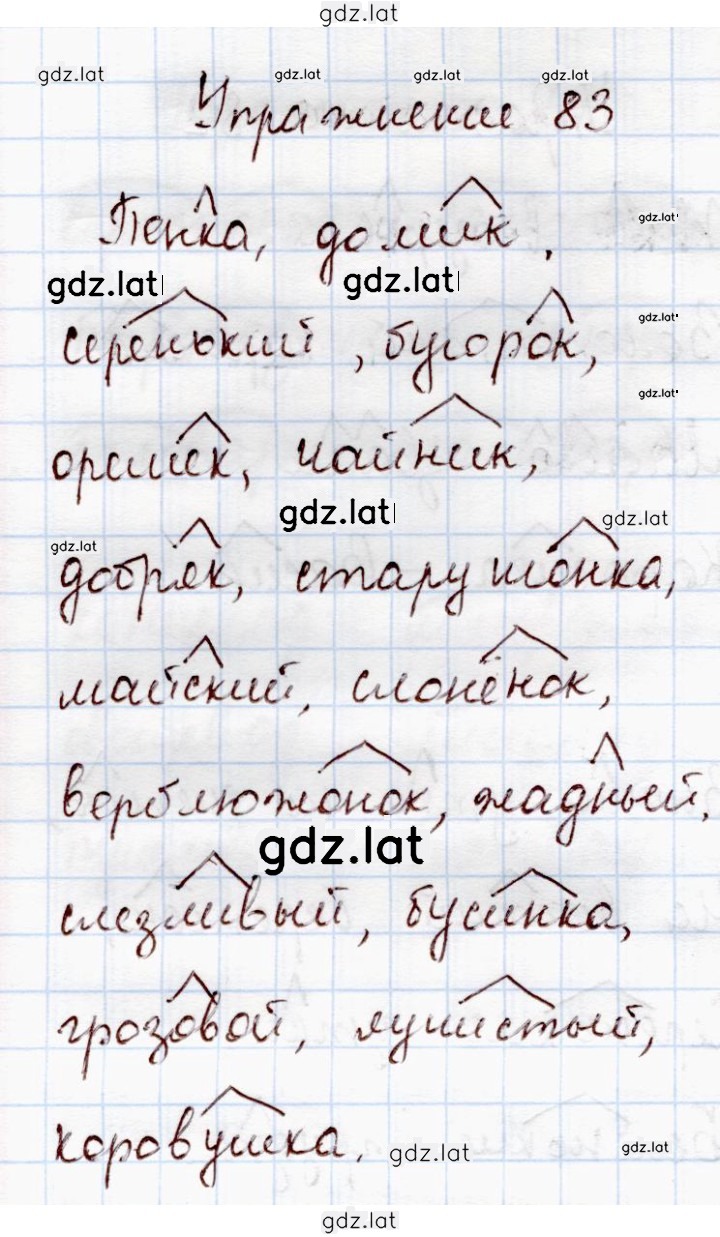 gdz.lat
gdz.lat gdz.lat gdz.lat gdz.lat
Упражнение 83
Пенка, домик,
gdz.lat
gdz.lat gdz.lat
серенький, бугорок,
gdz.lat
gdz.lat
орешек, чайник,
gdz.lat gdz.lat
gdz.lat
добряк, старушонка,
майский, слонёнок,
верблюжонок, жадный,
gdz.lat
слезливый, бусинка,
грозовой, лучистый,
коровушка. gdz.lat gdz.lat
gdz.lat